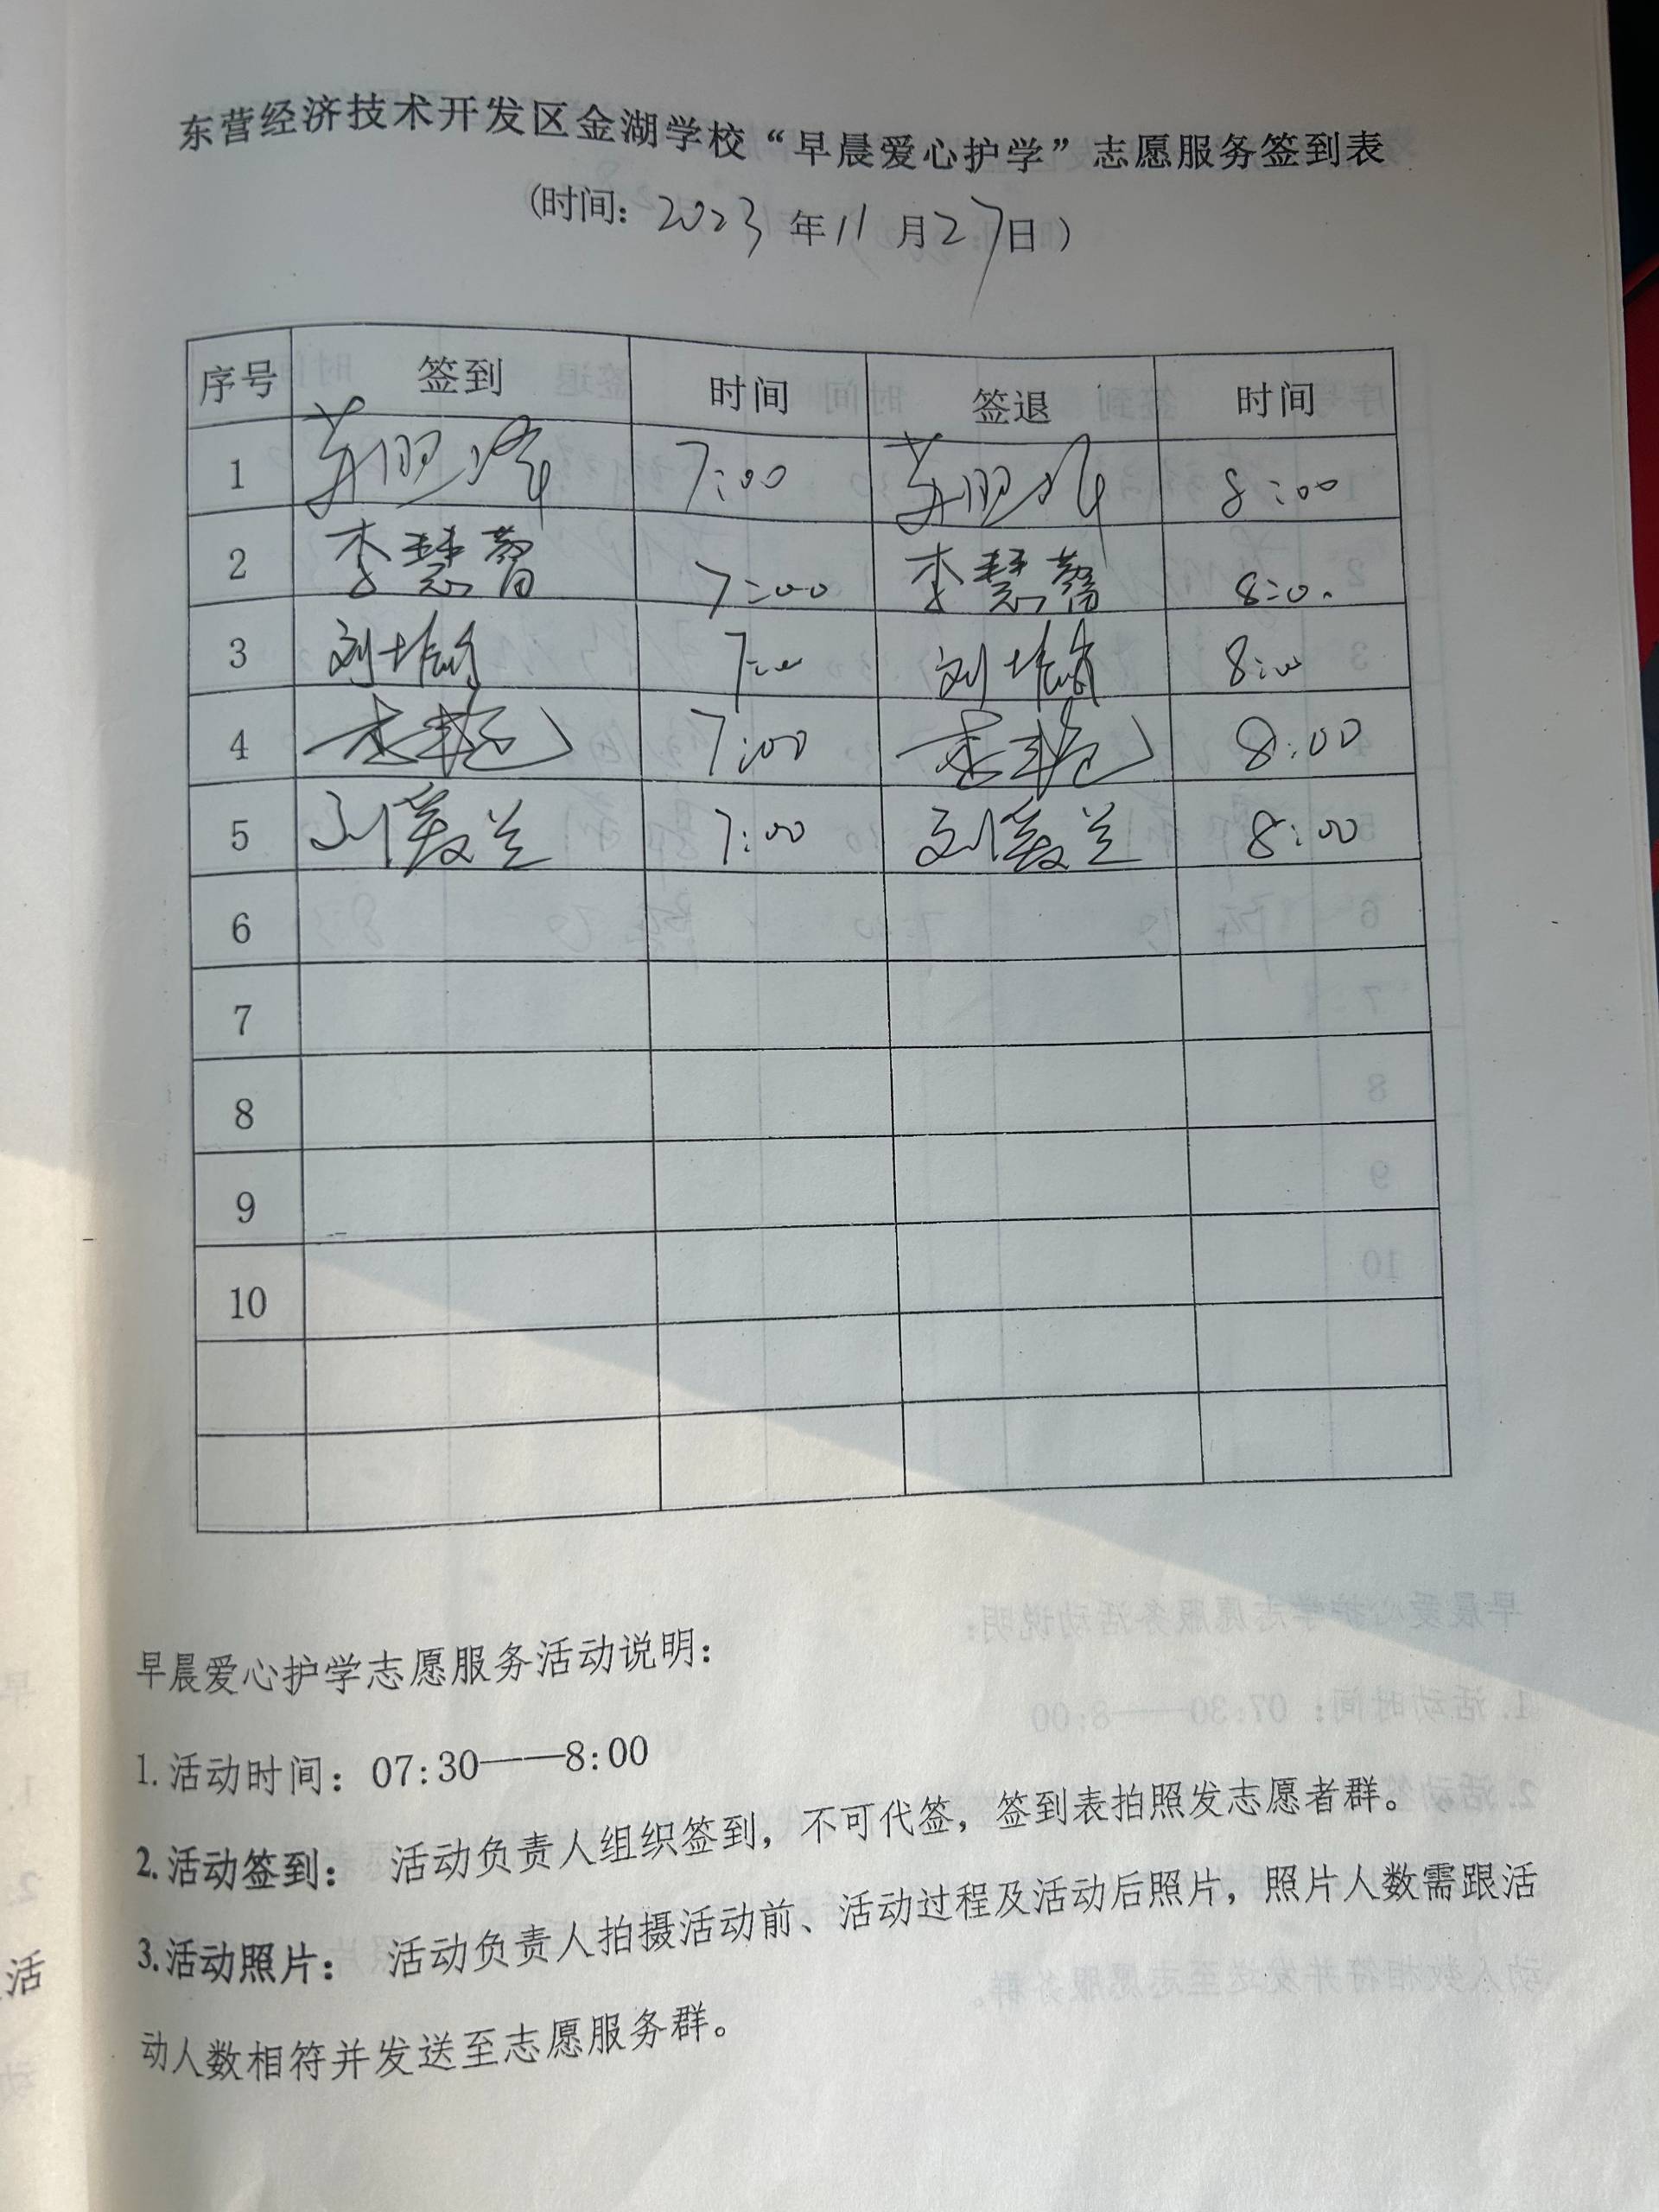 东营经济技术开发区金湖学校“早晨爱心护学”志愿服务签到表
(时间: 2023 年 11 月 27 日 )
序号 签到 时间 签退 时间
1 7:00 8:00
2 李慧馨 7:00 李慧馨 8:00
3 刘 7:00 刘 8:00
4 李 7:00 李 8:00
5 刘爱兰 7:00 刘爱兰 8:00
6
7
8
9
10
早晨爱心护学志愿服务活动说明:
1.活动时间: 07:30——8:00
2.活动签到: 活动负责人组织签到, 不可代签, 签到表拍照发志愿者群。
3.活动照片: 活动负责人拍摄活动前、活动过程及活动后照片, 照片人数需跟活
动人数相符并发送至志愿服务群。
活